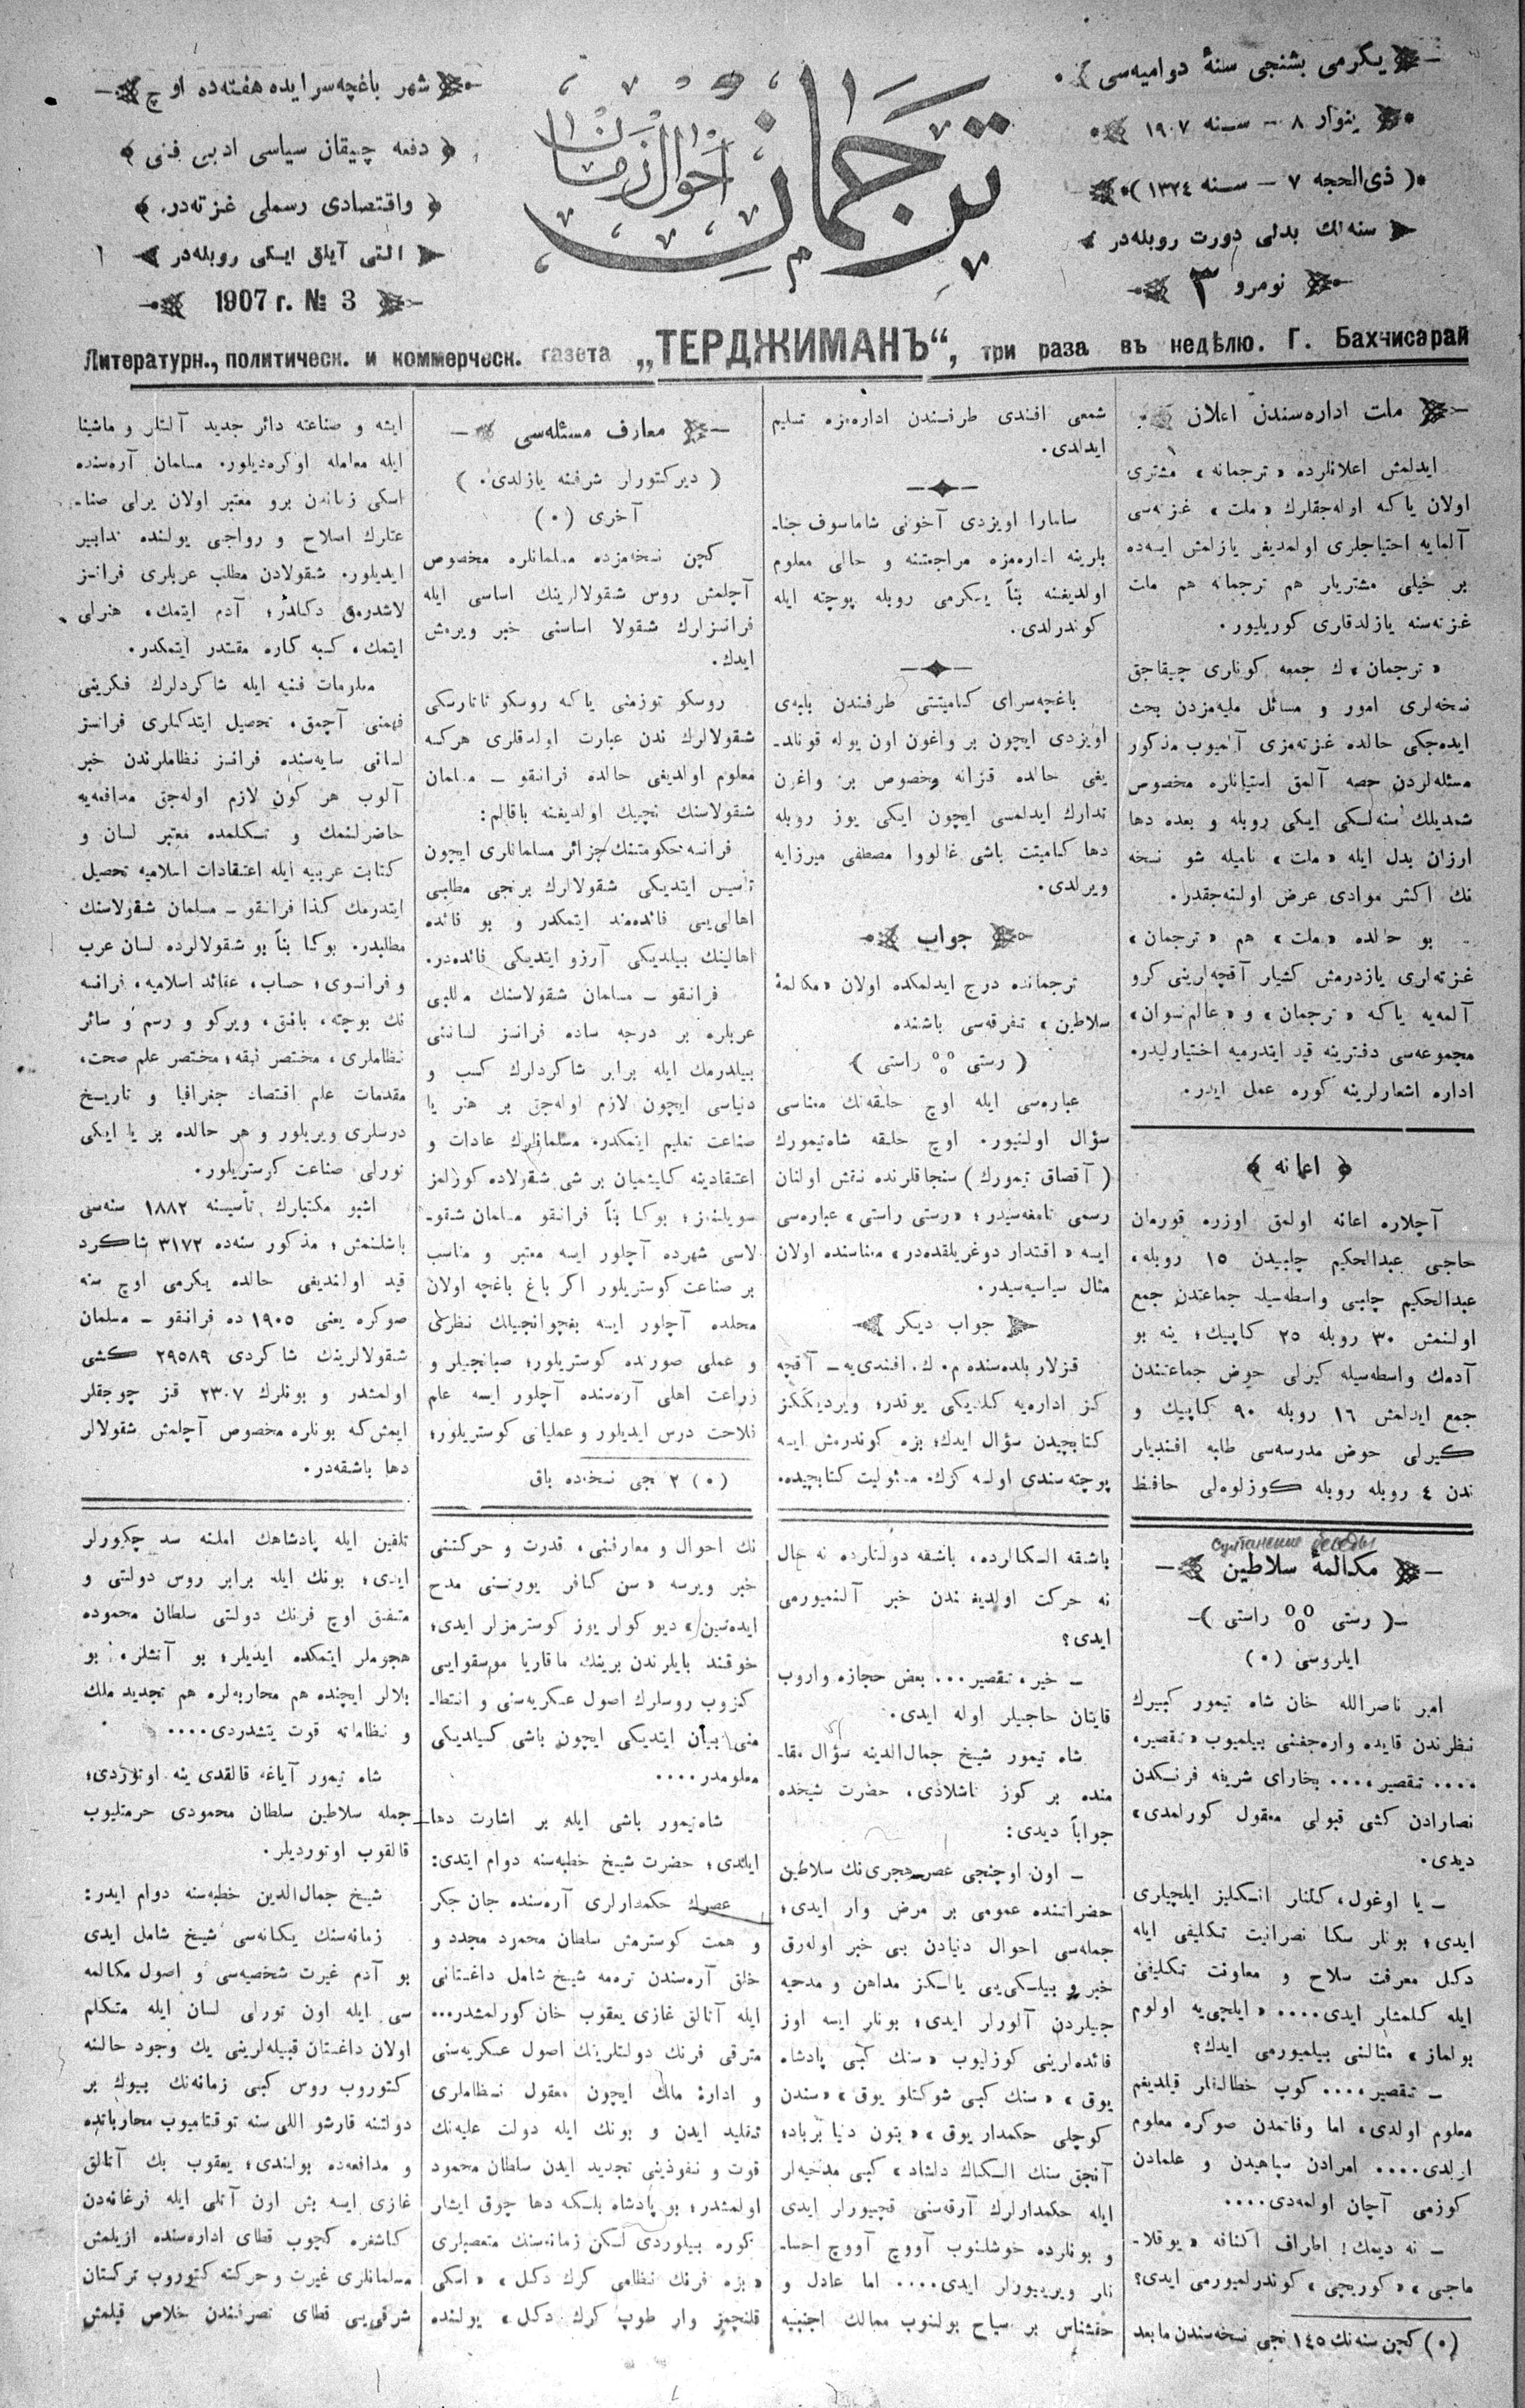 یكرمی بشنجی سنهٔ دوامیه‌سی
ینوار ۸ — سـنه ۱۹۰۷
(ذی‌الحجه ۷ — سـنه ۱۳۲٤)
سنه‌لك بدلی دورت روبله‌در
نومرو ۳
ترجمان
احوال زمان
شهر باغچه‌سرایده هفته‌ده اوچ
دفعه چیقان سیاسی ادبی فنی
واقتصادی رسملی غزته‌در.
التی آیلق ایـكی روبله‌در
1907 г. № 3
Литературн., политическ. и коммерческ. газета „ТЕРДЖИМАНЪ“, три раза въ недѣлю. Г. Бахчисарай
ملت اداره‌سندن اعلان
ایدلمش اعلانلرده «ترجمانه» مشتری
اولان یا كه اوله‌جقلرك «ملت» غزته‌سی
آلمایه احتیاجلری اولمدیغی یازلمش ایسه‌ده
بر خیلی مشتریلر هم ترجمانه هم ملت
غزته‌سنه یازلدقلری كوریلیور.
«ترجمان»ك جمعه كونلری چیقاجق
نسخه‌لری امور و مسائل ملیه‌مزدن بحث
ایده‌جكی حالده غزته‌مزی آلمیوب مذكور
مسئله‌لردن حصه آلمق استیانلره مخصوص
شمدیلك سنه‌لـكی ایـكی روبله و بعده دها
ارزان بدل ایله «ملت» نامیله شو نسخه
نك اكثر موادی عرض اولنه‌جقدر.
بو حالده «ملت» هم «ترجمان»
غزته‌لری یازدرمش كشیلر آقچه‌لرینی كرو
آلمه‌یه یا كه «ترجمان» و «عالم نسوان»
مجموعه‌سی دفترینه قید ایتدرمیه اختیارلیدر.
اداره اشعارلرینه كوره عمل ایدر.
اعانه
آچلاره اعانه اولمق اوزره قورمان
حاجی عبدالحكیم چلبیدن ۱۵ روبله،
عبدالحكیم چلبی واسطه‌سیله جماعتدن جمع
اولنمش ۳۰ روبله ۲۵ كاپیك؛ ینه بو
آدمك واسطه‌سیله كیرلی حوض جماعتندن
جمع ایدلمش ۱٦ روبله ۹۰ كاپیك و
كیرلی حوض مدرسه‌سی طلبه افندیلر
ندن ٤ روبله روبله كوزلوه‌لی حافظ
شمعی افندی طرفندن اداره‌مزه تسلیم
ایدلدی.
سامارا اویزدی آخونی شاماسوف جنا-
بلرینه اداره‌مزه مراجعتنه و حالی معلوم
اولدیغنه بنأ یـكرمی روبله پوچته ایله
كوندرلدی.
باغچه‌سرای كامیتتی طرفندن بلبه‌ی
اویزدی ایچون بر واغون اون یوله قونلد-
یغی حالده قزانه مخصوص بر واغون
تدارك ایدلمسی ایچون ایكی یوز روبله
دها كامیتت باشی غالووا مصطفی میرزایه
ویرلدی.
جواب
ترجمانده درج ایدلمكده اولان «مكالمهٔ
سلاطین» تفرقه‌سی باشنده
(رستی ooo راستی)
عباره‌سی ایله اوچ حلقه‌نك معناسی
سؤال اولنیور. اوچ حلقه شاه‌تیمورك
(آقصاق تیمورك) سنجاقلرنده نقش اولنان
رسمی تامغه‌سیدر؛ «رستی راستی» عباره‌سی
ایسه «اقتدار دوغریلقده‌در» معناسنده اولان
مثال سیاسیه‌سیدر.
جواب دیكر
قزلار بلده‌سنده م. ك. افندی‌یه — آقچه
كز اداره‌یه كلدیكی یوقدر؛ ویردیكـكز
كتابچیدن سؤال ایدك؛ بزه كوندرمش ایسه
پوچته سندی اولسه كرك. مسئولیت كتابچیده.
معارف مسئله‌سی
(دیركتورلر شرفنه یازلدی.)
آخری (٠)
كچن نسخه‌مزده مسلمانلره مخصوص
آچلمش روس شقولالرینك اساسی ایله
فرانسزلرك شقولا اساسنی خبر ویرمش
ایدك.
روسكو توزمنی یا كه روسكو تاتارسكی
شقولالرك ندن عبارت اولدقلری هركسه
معلوم اولدیغی حالده فرانقو — مسلمان
شقولاسنك نچیك اولدیغنه باقالم:
فرانسه حكومتنك جزائر مسلمانلری ایچون
تأسیس ایتدیكی شقولالرك برنجی مطلبی
اهالی‌یی فائده‌مند ایتمكدر و بو فائده
اهالینك بیلدیكی آرزو ایتدیكی فائده‌در.
فرانقو — مسلمان شقولاسنك مطلبی
عربلره بر درجه ساده فرانسز لساننی
بیلدرمك ایله برابر شاكردلرك كسب و
دنیاسی ایچون لازم اوله‌جق بر هنر یا
صناعت تعلیم ایتمكدر. مسلمانلرك عادات و
اعتقادینه كلیشمیان بر شی شقولاده كوزلمز
سویلنمز؛ بوكا بنأ فرانقو مسلمان شقو-
لاسی شهرده آچلور ایسه معتبر و مناسب
بر صناعت كوستریلور اكر باغ باغچه اولان
محلده آچلور ایسه بغچوانجیلك نظری
و عملی صورتده كوستریلور؛ صبانجیلر و
زراعت اهلی آره‌سنده آچلور ایسه علم
فلاحت درس ایدیلور و عملیاتی كوستریلور؛
(٠) ۲ نجی نسخه‌ده باق
ایشه و صناعته دائر جدید آلتلر و ماشینا
ایله معامله اوكره‌دیلور. مسلمان آره‌سنده
اسكی زماندن برو معتبر اولان یرلی صنا-
عتلرك اصلاح و رواجی یولنده تدابیر
ایدیلور. شقولادن مطلب عربلری فرانسز
لاشدرمق دكلدر؛ آدم ایتمك، هنرلی
ایتمك، كسبه كاره مقتدر ایتمكدر.
معلومات فنیه ایله شاكردلرك فكرینی
فهمنی آچمق، تحصیل ایتدكلری فرانسز
لسانی سایه‌سنده فرانسز نظاملرندن خبر
آلوب هر كون لازم اوله‌جق مدافعه‌یه
حاضرلنمك و تـكلمده معتبر لسان و
كتابت عربیه ایله اعتقادات اسلامیه تحصیل
ایتدرمك كذا فرانقو — مسلمان شقولاسنك
مطلبیدر. بوكا بنأ بو شقولالرده لسان عرب
و فرانسوی؛ حساب، عقائد اسلامیه، فرانسه
نك پوچته، بانق، ویركو و رسم و سائر
نظاملری، مختصر فقه؛ مختصر علم صحت،
مقدمات علم اقتصاد جغرافیا و تاریـخ
درسلری ویریلور و هر حالده بر یا ایكی
تورلی صناعت كوستریلور.
اشبو مكتبلرك تأسیسنه ۱۸۸۲ سنه‌سی
باشلنمش؛ مذكور سنه‌ده ۳۱۷۲ شاكرد
قید اولندیغی حالده یكرمی اوچ سنه
صوكره یعنی ۱۹۰۵ ده فرانقو — مسلمان
شقولالرینك شاكردی ۲۹۵۸۹ كشی
اولمشدر و بونلرك ۲۳۰۷ قز چوجقلر
ایمش كه بونلره مخصوص آچلمش شقولالر
دها باشقه‌در.
Султанские беседы
مكالمهٔ سلاطین
(رستی ooo راستی)
ایلروسی (٠)
امیر ناصرالله خان شاه تیمور كبیرك
نظرندن قایده واره‌جغنی بیلمیوب «تقصیر،
.... تقصیر،... بخارای شریفه فرنـكدن
نصارادن كشی قبولی معقول كورلمدی»
دیدی.
— یا اوغول، كلنلر انـكلیز ایلچیلری
ایدی؛ بونلر سكا نصرانیت تـكلیفی ایله
دكل معرفت سلاح و معاونت تـكلیفی
ایله كلمشلر ایدی.... «ایلچی‌یه اولوم
بولماز» مثالنی بیلمیورمی ایدك؟
— تقصیر،... كوب خطالنلر قیلدیغم
معلوم اولدی، اما وفاتمدن صوكره معلوم
اولدی.... امرادن سپاهیدن و علمادن
كوزمی آچان اولمه‌دی....
— نه دیمك! اطراف اكنافه «یوقلا-
ماجی» «كوریجی» كوندرلمیورمی ایدی؟
(٠) كچن سنه‌نك ۱٤۵ نجی نسخه‌سندن مابعد
باشقه الـكالرده، باشقه دولتلرده نه حال
نه حركت اولدیغندن خبر آلنمیورمی
ایدی؟
— خیر، تقصیر... بعض حجازه واروب
قایتان حاجیلر اوله ایدی.
شاه تیمور شیخ جمال‌الدینه سؤال مقا-
منده بر كوز تاشلادی، حضرت شیخده
جواباً دیدی:
— اون اوچنجی عصر هجری‌نك سلاطین
حضراتنده عمومی بر مرض وار ایدی؛
جمله‌سی احوال دنیادن بی خبر اوله‌رق
خبر و بیلـكی‌یی یالـكز مداهن و مدحیه
جیلردن آلورلر ایدی؛ بونلر ایسه اوز
فائده‌لرینی كوزلیوب «سنك كبی پادشاه
یوق» «سنك كبی شوكتلو یوق» «سندن
كوچلی حكمدار یوق» «بتون دنیا برباد؛
آنجق سنك الـكاك دلشاد» كبی مدحیه‌لر
ایله حكمدارلرك آرقه‌سنی قچیورلر ایدی
و بونلرده خوشلنوب آووچ آووچ احسا-
نلر ویرییورلر ایدی.... اما عادل و
حقشناس بر سیاح بولنوب ممالك اجنبیه
نك احوال و معارفنی، قدرت و حركتنی
خبر ویرسه «سن كافر یورتنی مدح
ایده‌سین» دیو كولر یوز كوسترمزلر ایدی؛
خوقند بایلرندن برینك ماقاریا موسقوایی
كزوب روسلرك اصول عسكریه‌سنی و انتظا-
منی بیان ایتدیكی ایچون باشی كسیلدیكی
معلومدر....
شاه‌تیمور باشی ایله بر اشارت دها
ایلدی؛ حضرت شیخ خطبه‌سنه دوام ایتدی:
عصرك حكمدارلری آره‌سنده جان جكر
و همت كوسترمش سلطان محمود مجدد و
خلق آره‌سندن ترمه شیخ شامل داغستانی
ایله آتالق غازی یعقوب خان كورلمشدر...
مترقی فرنك دولتلرینك اصول عسكریه‌سنی
و ادارهٔ مالك ایچون معقول نـظاملری
تقلید ایدن و بونك ایله دولت علیه‌نك
قوت و نفوذینی تجدید ایدن سلطان محمود
اولمشدر؛ بو پادشاه بلـكه دها چوق ایشلر
كوره بیلوردی لـكن زمانه‌سنك متعصبلری
«بزه فرنك نظامی كرك دكل» «اسكی
قلنچمز وار طوپ كرك دكل» یولنده
تلقین ایله پادشاهك املنه سد چكیورلر
ایدی؛ بونك ایله برابر روس دولتی و
متفق اوچ فرنك دولتی سلطان محموده
هجوملر ایتمكده ایدیلر؛ بو آتشلر، بو
بلالر ایچنده هم محاربه‌لره هم تجدید ملك
و نظاماته قوت یتشدردی....
شاه تیمور آیاغه قالقدی ینه اوتوردی؛
جمله سلاطین سلطان محمودی حرمتلیوب
قالقوب اوتوردیلر.
شیخ جمال‌الدین خطبه‌سنه دوام ایدر:
زمانه‌سنك یـكانه‌سی شیخ شامل ایدی
بو آدم غیرت شخصیه‌سی و اصول مكالمه
سی ایله اون تورلی لسان ایله متكلم
اولان داغستان قبیله‌لرینی یك وجود حالنه
كتوروب روس كبی زمانه‌نك بیوك بر
دولتنه قارشو اللی سنه توقتامیوب محارباتده
و مدافعه‌ده بولندی؛ یعقوب بك آتالق
غازی ایسه بش اون آتلی ایله فرغانه‌دن
كاشغره كچوب قطای اداره‌سنده ازیلمش
مسلمانلری غیرت و حركته كتوروب تركستان
شرقی‌یی قطای تصرفندن خلاص قیلمش